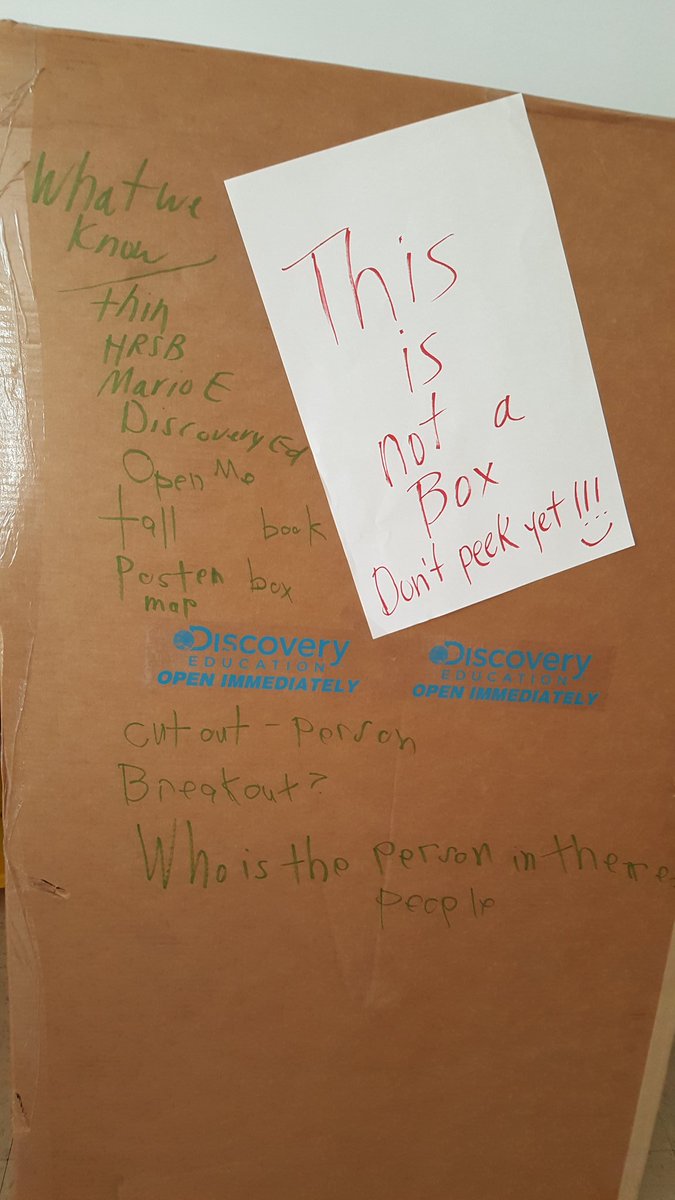 What we
know
thin
HRSB
Mario E
Discovery Ed
Open Mo
tall book
Poster box
map
This
is
not a
Box
Don't peek yet!!!
Discovery
EDUCATION
OPEN IMMEDIATELY
Discovery
EDUCATION
OPEN IMMEDIATELY
cut out - person
Breakout?
Who is the person in there
people